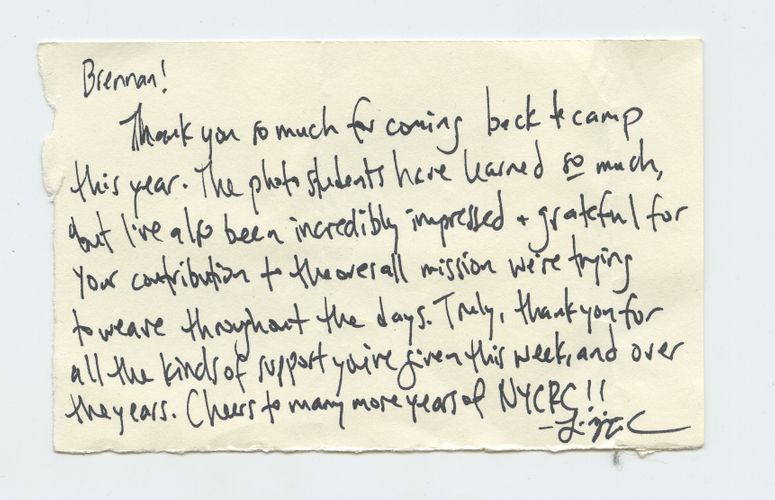 Brennan!
Thank you so much for coming back to camp
this year. The photo students have learned so much,
but I've also been incredibly impressed + grateful for
your contribution to the overall mission we're trying
to weave throughout the days. Truly, thank you for
all the kinds of support you've given this week, and over
the years. Cheers to many more years of NYCRC!!